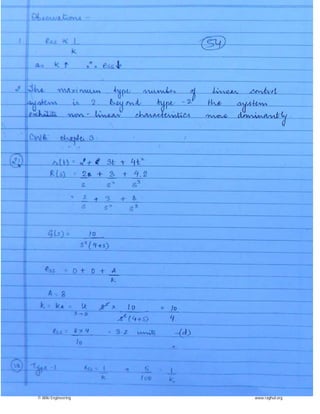 Observations :-
1. ess ∝ 1/K
54
as K ↑ ∴ ess ↓
2. The maximum type number of linear control
system is 2. Beyond type -2 the system
exhibits non-linear characteristics more dominantly.
CWB chapter 3
r(t) = 2 + 3t + 4t²
R(s) = 2/s + 3/s² + 4.2/s³
= 2/s + 3/s² + 8/s³
G(s) = 10/s²(4+s)
ess = 0 + 0 + A/K
A = 8
K = Ka = lt s→0 s² × 10/s²(4+s) = 10/4
ess = 8×4/10 = 3.2 units -(d)
Type -1 ess = 1/K = 5/100 = 1/K
© Wiki Engineering
www.raghul.org